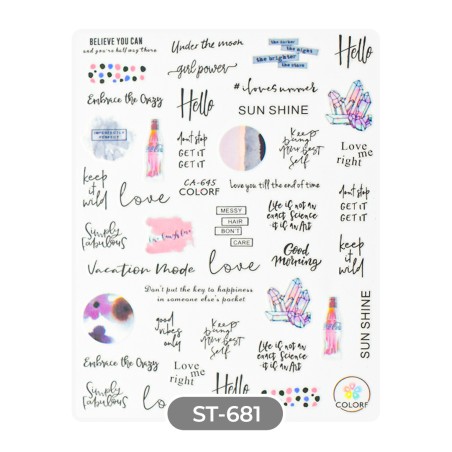 BELIEVE YOU CAN
and you're half way there
Under the moon
the darker
the night
the brighter
the stars
Hello
girl power
Embrace the Crazy
Hello
#lovesummer
SUN SHINE
IMPERFECTLY
PERFECT
don't stop
GET IT
GET IT
Keep
being
your Best
Self
Love
me
right
keep
it
wild
love
CA-645
COLORF
Love you till the end of time
don't stop
GET IT
GET IT
Simply
Fabulous
MESSY
HAIR
DON'T
CARE
Life is not an
exact Science
it is an Art
keep
it
wild
Vacation Mode
love
Good
Morning
Don't put the key to happiness
in someone else's pocket
good
vibes
only
Keep
being
your Best
Self
Life is not an
exact Science
it is an Art
SUN SHINE
Embrace the Crazy
Love
me
right
Simply
Fabulous
lo
Hello
COLORF
ST-681